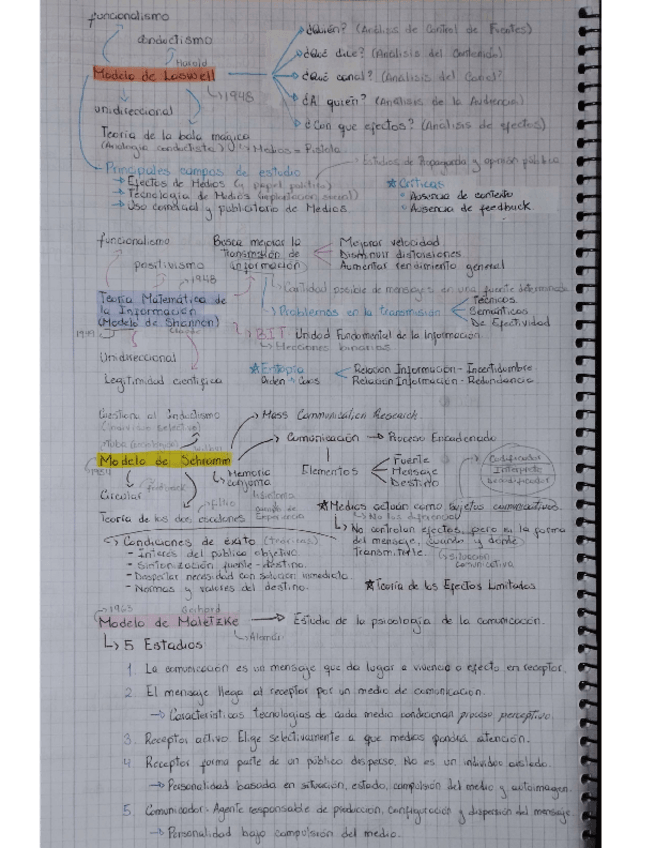 funcionalismo
conductismo
Harold
Modelo de Laswell
1948
¿Quién? (Análisis de Control de Fuentes)
¿Qué dice? (Análisis del Contenido)
¿Qué canal? (Análisis del Canal)
¿A quien? (Análisis de la Audiencia)
¿Con que efectos? (Análisis de efectos)
unidireccional
Teoría de la bala mágica
(Analogía conductista) Medios = Pistola
Principales campos de estudio
Estudios de Propaganda y opinión pública
→ Efectos de Medios (y papel político)
→ Tecnología de Medios
→ Uso comercial y publicitario de Medios
★ Críticas
• Ausencia de contexto
• Ausencia de feedback.
funcionalismo
positivismo
1948
Teoría Matemática de
la Información
(Modelo de Shannon)
1949
Claude
Busca mejorar la
transmisión de
información
Mejorar velocidad
Disminuir distorsiones
Aumentar rendimiento general
Cantidad posible de mensajes en una fuente determinada
Problemas en la transmisión
Técnicos
Semánticos
De Efectividad
BIT Unidad Fundamental de la Información.
Elecciones binarias
Unidireccional
Legitimidad científica
★ Entropía
Orden → Caos
Relación Información - Incertidumbre
Relación Información - Redundancia
Cuestiona al Inductismo
Modelo de Schramm
1954
Wilbur
Mass Communication Research
Comunicación → Proceso Encadenado
Elementos
Fuente
Mensaje
Destino
Codificador
Interprete
Decodificador
Memoria
conjunta
Circular
feedback
Teoría de los dos escalones
★ Medios actúan como sujetos comunicativos.
No los diferencia
No controlan efectos, pero si la forma
del mensaje, cuando y donde
transmitirle.
situación
comunicativa
Condiciones de éxito (teóricas)
- Interés del público objetivo
- Sintonización fuente-destino.
- Despertar necesidad con solución inmediata.
- Normas y valores del destino.
★ Teoría de los Efectos Limitados
1963
Gerhard
Modelo de Maletzke → Estudio de la psicología de la comunicación.
Alemán
↳ 5 Estudios
1. La comunicación es un mensaje que da lugar a vivencia o efecto en receptor.
2. El mensaje llega al receptor por un medio de comunicación.
→ Características tecnologías de cada medio condicionan proceso perceptivo.
3. Receptor activo. Elige selectivamente a que medios pondrá atención.
4 Receptor forma parte de un público disperso. No es un individuo aislado.
→ Personalidad basada en situación, estado, compulsión del medio y autoimagen.
5. Comunicador - Agente responsable de producción, configuración y dispersión del mensaje.
→ Personalidad bajo compulsión del medio.